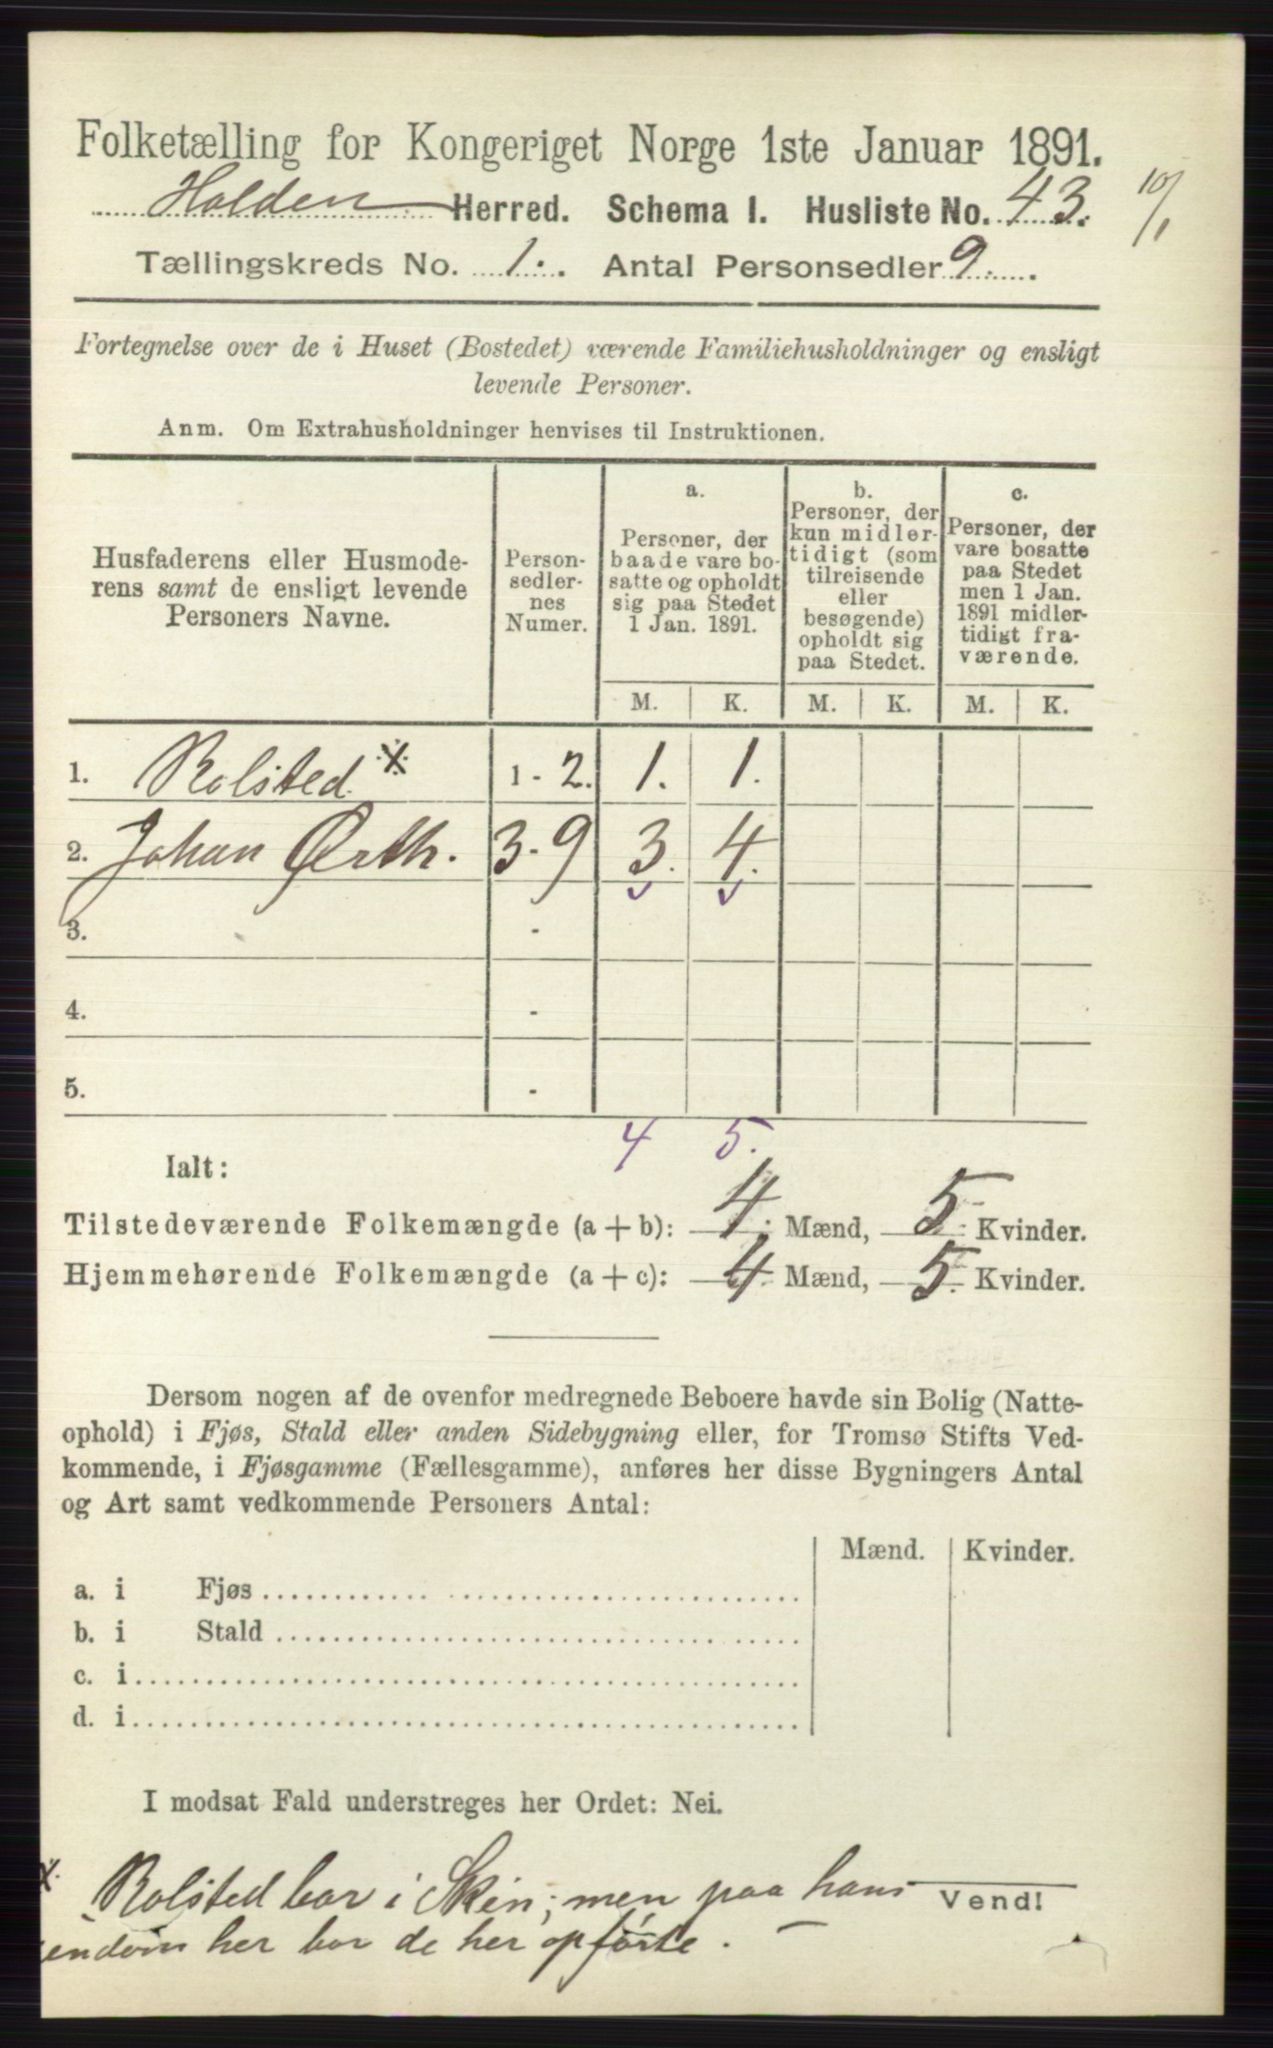 Folketælling for Kongeriget Norge 1ste Januar 1891.
Holden Herred. Schema I. Husliste No. 43. 10/1
Tællingskreds No. 1. Antal Personsedler 9.
Fortegnelse over de i Huset (Bostedet) værende Familiehusholdninger og ensligt
levende Personer.
Anm. Om Extrahusholdninger henvises til Instruktionen.
Husfaderens eller Husmode-
rens samt de ensligt levende
Personers Navne.
Person-
sedler-
nes
Numer.
a.
Personer, der
baade vare bo-
satte og opholdt
sig paa Stedet
1 Jan. 1891.
b.
Personer, der
kun midler-
tidigt (som
tilreisende
eller
besøgende)
opholdt sig
paa Stedet.
c.
Personer, der
vare bosatte
paa Stedet
men 1 Jan.
1891 midler-
tidigt fra-
værende.
M. K. M. K. M. K.
1. Rolsted × 1 - 2. 1. 1.
2. Johan Ørth. 3 - 9 3. 4.
3. -
4. -
5. -
4 5.
Ialt:
Tilstedeværende Folkemængde (a + b): 4. Mænd, 5. Kvinder.
Hjemmehørende Folkemængde (a + c): 4. Mænd, 5. Kvinder.
Dersom nogen af de ovenfor medregnede Beboere havde sin Bolig (Natte-
ophold) i Fjøs, Stald eller anden Sidebygning eller, for Tromsø Stifts Ved-
kommende, i Fjøsgamme (Fællesgamme), anføres her disse Bygningers Antal
og Art samt vedkommende Personers Antal:
Mænd. Kvinder.
a. i Fjøs
b. i Stald
c. i
d. i
I modsat Fald understreges her Ordet: Nei.
×. Rolsted bor i Skien; men paa hans
endom her bor de her opførte. -
Vend!